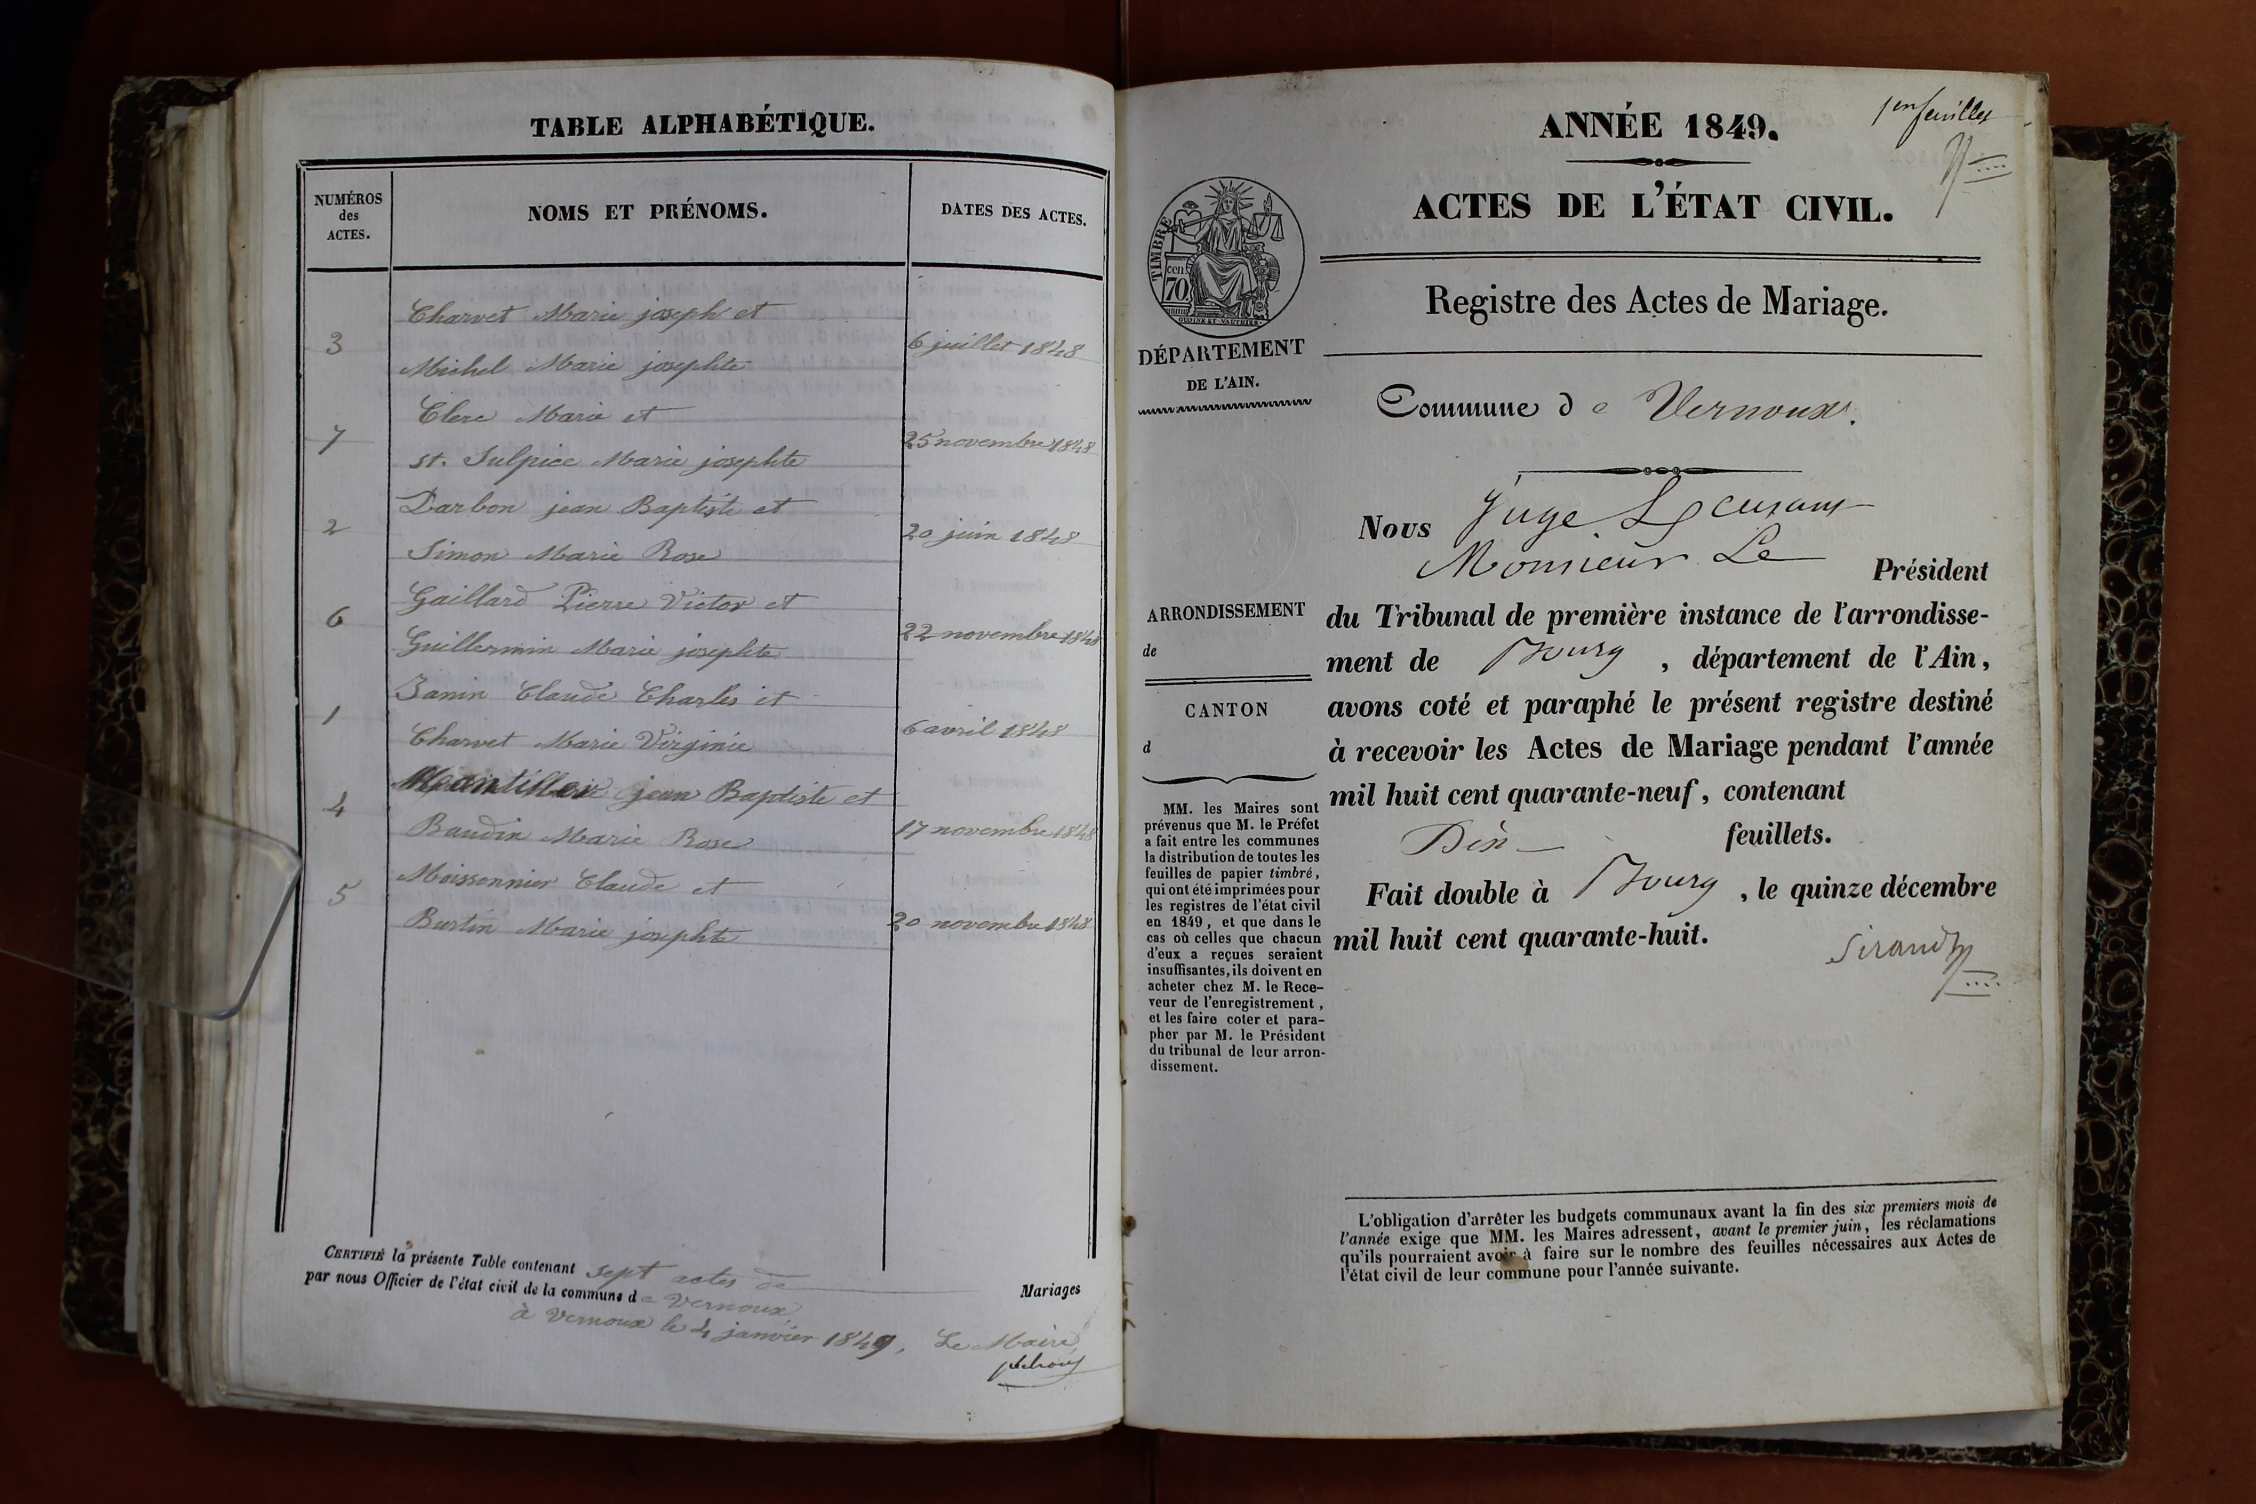 TABLE ALPHABÉTIQUE.
NUMÉROS
des
ACTES.
NOMS ET PRÉNOMS.
DATES DES ACTES.
Charvet Marie joseph et
3
6 juillet 1848
Michel Marie josephte
Clerc Marie et
7
25 novembre 1848
st. Sulpice Marie josephte
Darbon jean Baptiste et
2
20 juin 1848
Simon Marie Rose
Gaillard Pierre Victor et
6
22 novembre 1848
Guillermin Marie josephte
Janin Claude Charles et
1
6 avril 1848
Charvet Marie Virginie
jean Baptiste et
4
17 novembre 1848
Baudin Marie Rose
Moissonnier Claude et
5
20 novembre 1848
Burtin Marie josephte
CERTIFIÉ la présente Table contenant sept actes de Mariages
par nous Officier de l'état civil de la commune de Vernoux
à Vernoux le 4 janvier 1849, Le Maire,
1er feuillet
ANNÉE 1849.
ACTES DE L'ÉTAT CIVIL.
TIMBRE
70 cen.
Registre des Actes de Mariage.
DÉPARTEMENT
DE L'AIN.
Commune de Vernoux.
Nous juge
Monsieur Le Président
ARRONDISSEMENT
de
CANTON
d
du Tribunal de première instance de l'arrondisse-
ment de Bourg, département de l'Ain,
avons coté et paraphé le présent registre destiné
à recevoir les Actes de Mariage pendant l'année
mil huit cent quarante-neuf, contenant
Dix feuillets.
Fait double à Bourg, le quinze décembre
mil huit cent quarante-huit.
Sirand
MM. les Maires sont
prévenus que M. le Préfet
a fait entre les communes
la distribution de toutes les
feuilles de papier timbré,
qui ont été imprimées pour
les registres de l'état civil
en 1849, et que dans le
cas où celles que chacun
d'eux a reçues seraient
insuffisantes, ils doivent en
acheter chez M. le Rece-
veur de l'enregistrement,
et les faire coter et para-
pher par M. le Président
du tribunal de leur arron-
dissement.
L'obligation d'arrêter les budgets communaux avant la fin des six premiers mois de
l'année exige que MM. les Maires adressent, avant le premier juin, les réclamations
qu'ils pourraient avoir à faire sur le nombre des feuilles nécessaires aux Actes de
l'état civil de leur commune pour l'année suivante.